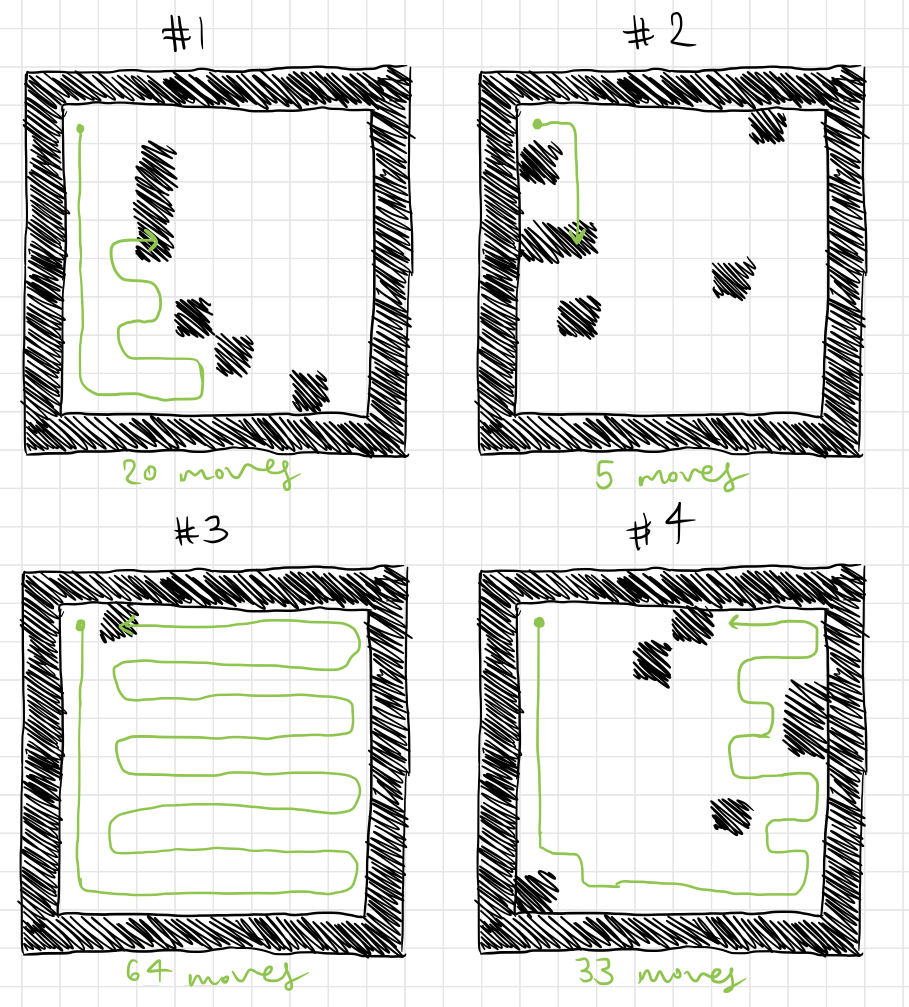 #1
#2
20 moves
5 moves
#3
#4
64 moves
33 moves